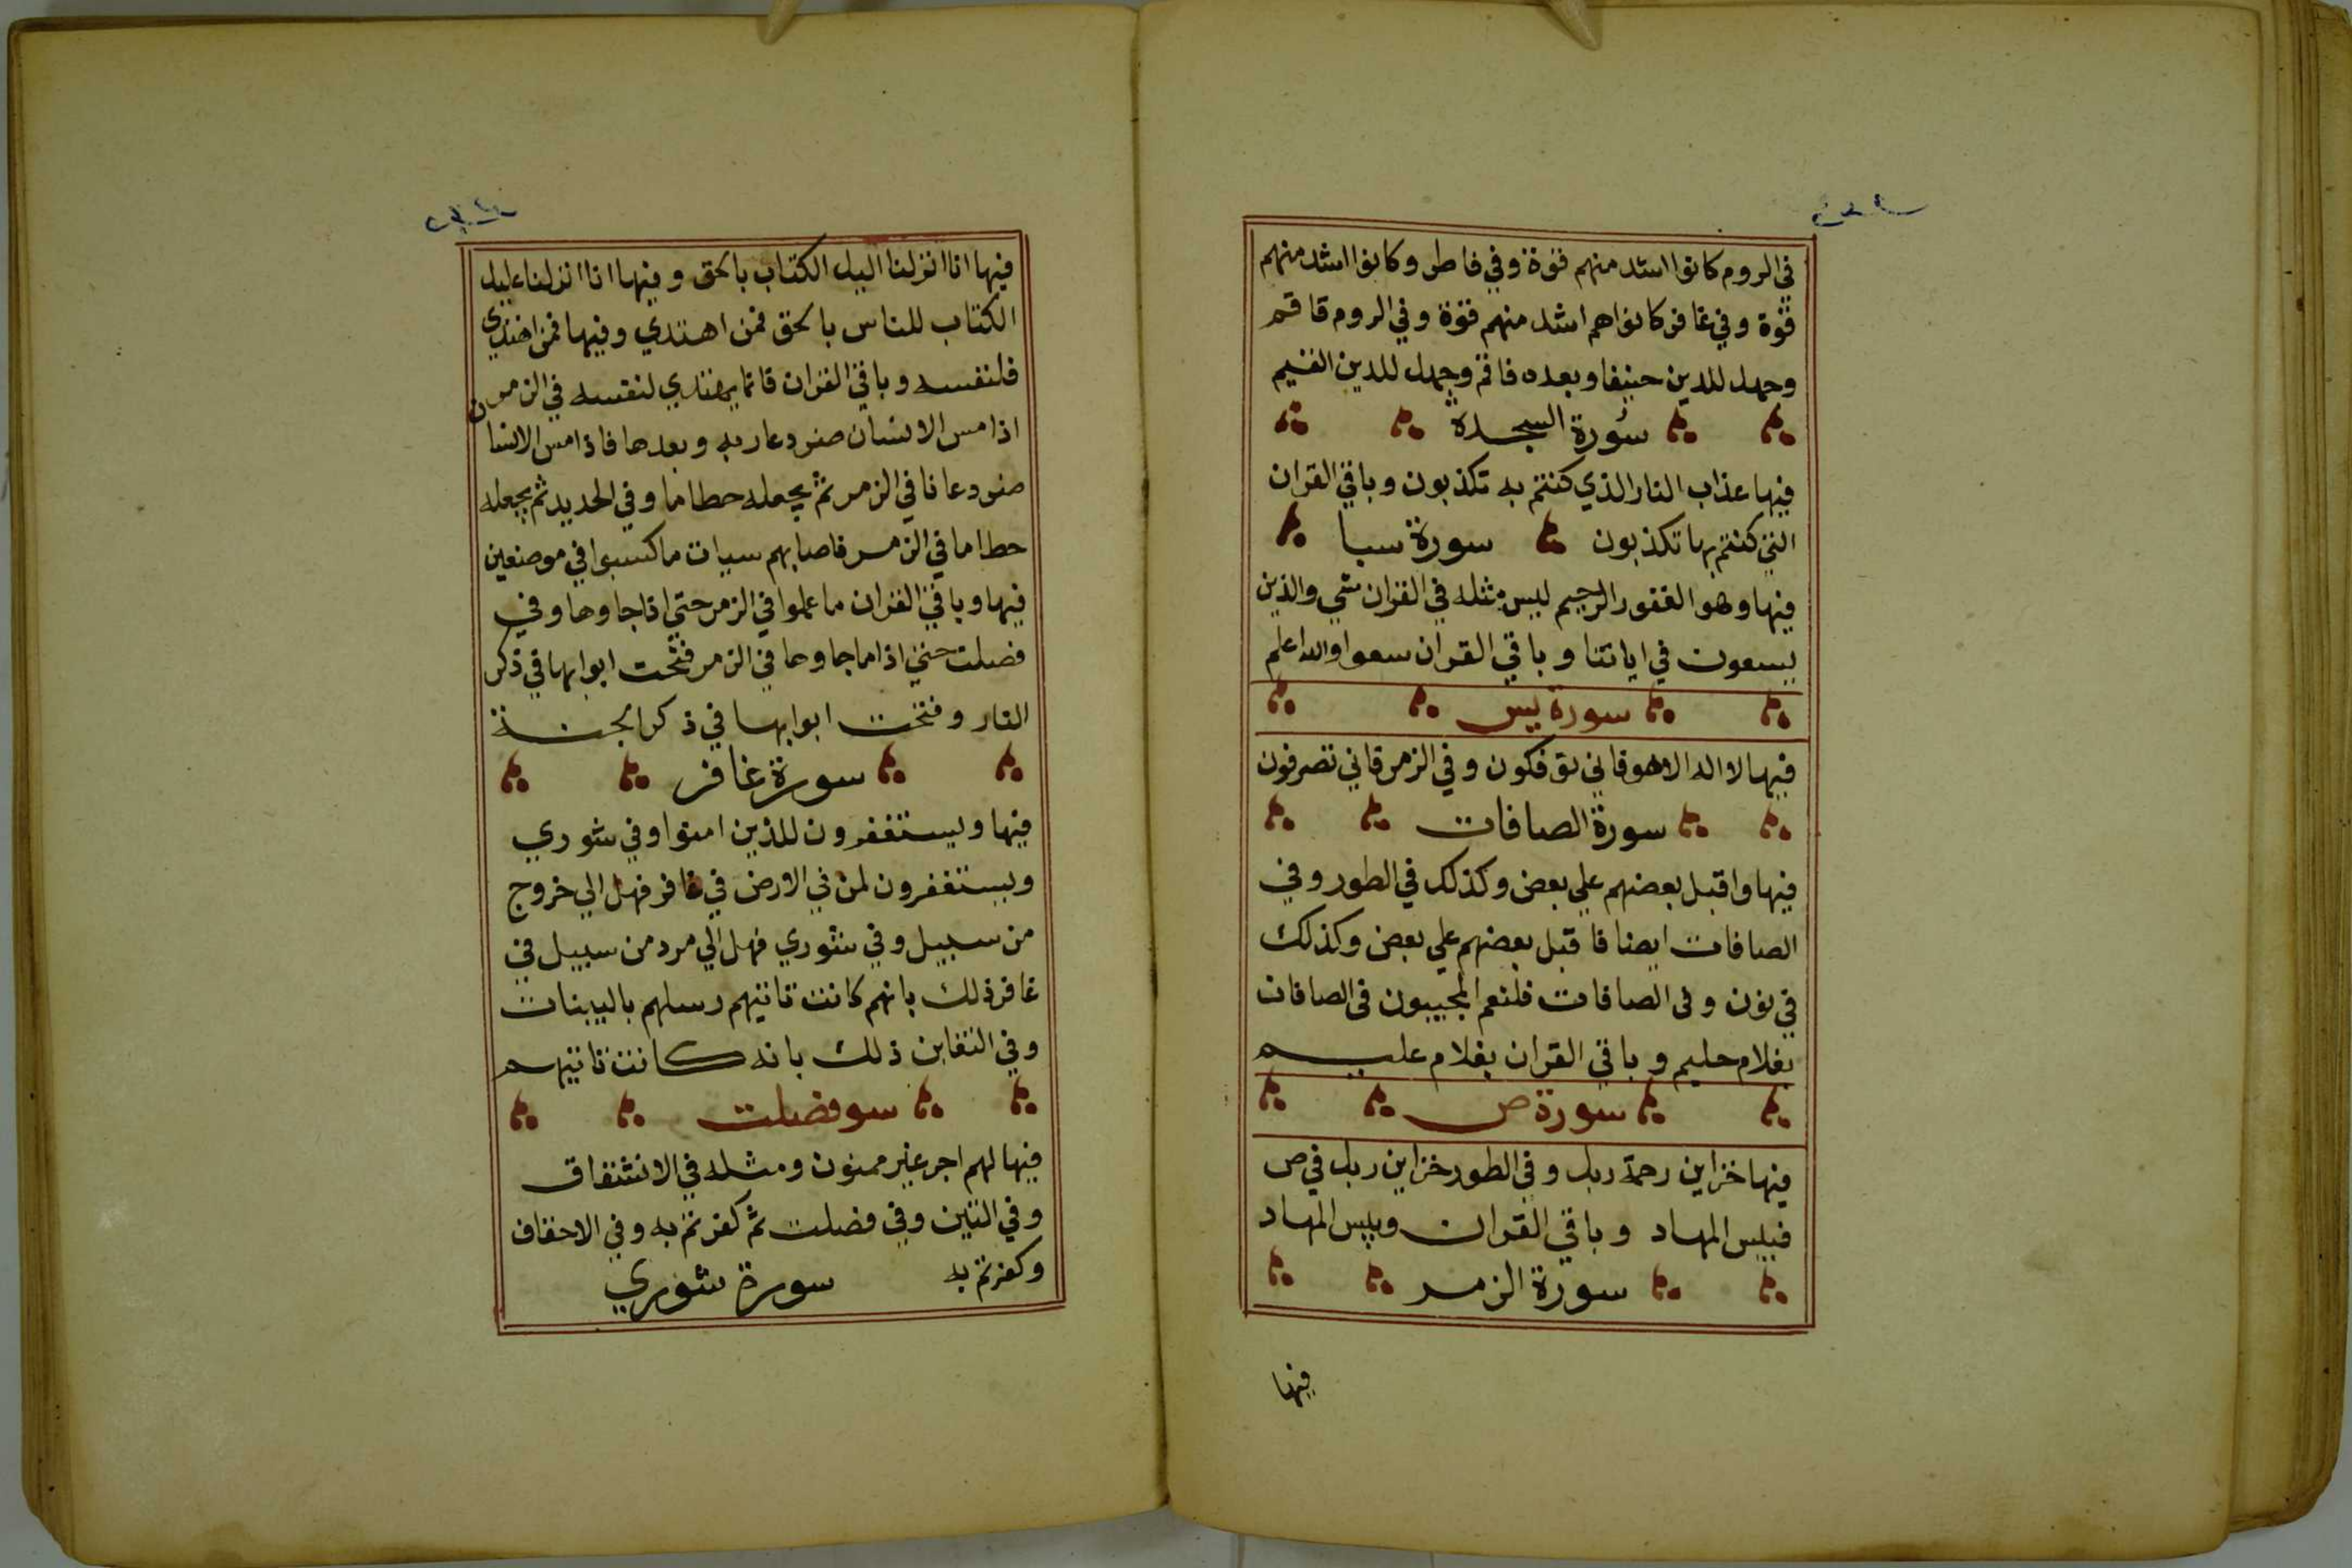 في الروم كانوا اشد منهم قوة وفي فاطر وكانوا اشد منهم
قوة وفي غافر كانوا هم اشد منهم قوة وفي الروم فاقم
وجهك للدين حنيفا وبعده فاقم وجهك للدين القيم
سورة السجدة
فيها عذاب النار الذي كنتم به تكذبون وباقي القران
التي كنتم بها تكذبون سورة سبا
فيها وهو الغفور الرحيم ليس مثله في القران شي والذين
يسعون في اياتنا وباقي القران سعوا والله اعلم
سورة يس
فيها لا اله الا هو فاني توفكون وفي الزمر فاني تصرفون
سورة الصافات
فيها واقبل بعضهم علي بعض وكذلك في الطور وفي
الصافات ايضا فاقبل بعضهم علي بعض وكذلك
في نون وفي الصافات فلنعم المجيبون في الصافات
بغلام حليم وباقي القران بغلام عليم
سورة ص
فيها خزاين رحمة ربك وفي الطور خزاين ربك في ص
فبيس المهاد وباقي القران وبيس المهاد
سورة الزمر
فيها
فيها انا انزلنا اليك الكتاب بالحق وفيها انا انزلنا عليك
الكتاب للناس بالحق فمن اهتدي وفيها فمن اهتدي
فلنفسه وباقي القران فانما يهتدي لنفسه في الزمر
اذا مس الانسان ضر دعا ربه وبعدها فاذا مس الانسان
ضر دعانا في الزمر ثم يجعله حطاما وفي الحديد ثم يجعله
حطاما في الزمر فاصابهم سيات ما كسبوا في موضعين
فيها وباقي القران ما عملوا في الزمر حتي اذا جاوها وفي
فصلت حتي اذا ما جاوها في الزمر فتحت ابوابها في ذكر
النار وفتحت ابوابها في ذكر الجنة
سورة غافر
فيها ويستغفرون للذين امنوا وفي شوري
ويستغفرون لمن في الارض في غافر فهل الي خروج
من سبيل وفي شوري فهل الي مرد من سبيل في
غافر ذلك بانهم كانت تاتيهم رسلهم بالبينات
وفي التغابن ذلك بانه كانت تاتيهم
سو فصلت
فيها لهم اجر غير ممنون ومثله في الانشقاق
وفي التين وفي فصلت ثم كفرتم به وفي الاحقاف
وكفرتم به سورة شوري